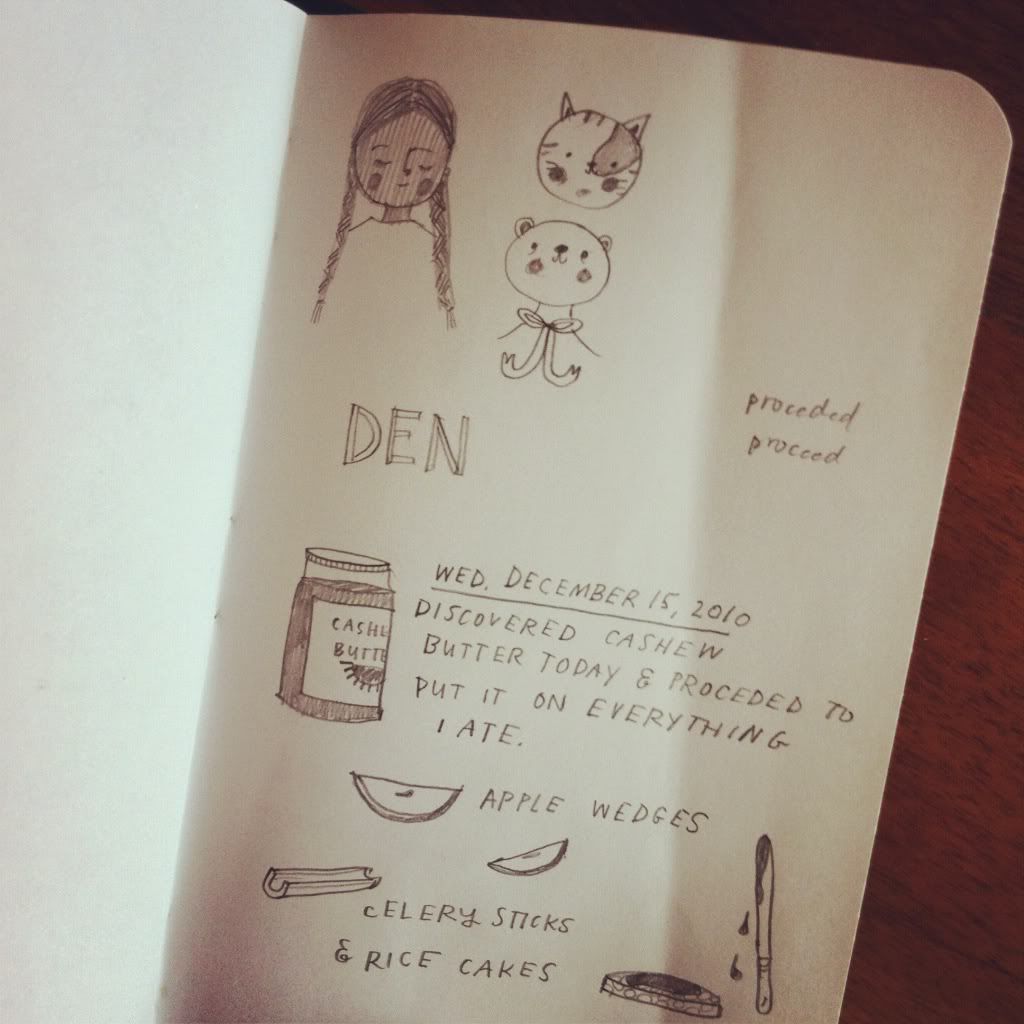 DEN
proceded
proceed
CASHE
BUTTE
WED, DECEMBER 15, 2010
DISCOVERED CASHEW
BUTTER TODAY & PROCEDED TO
PUT IT ON EVERYTHING
I ATE.
APPLE WEDGES
CELERY STICKS
& RICE CAKES